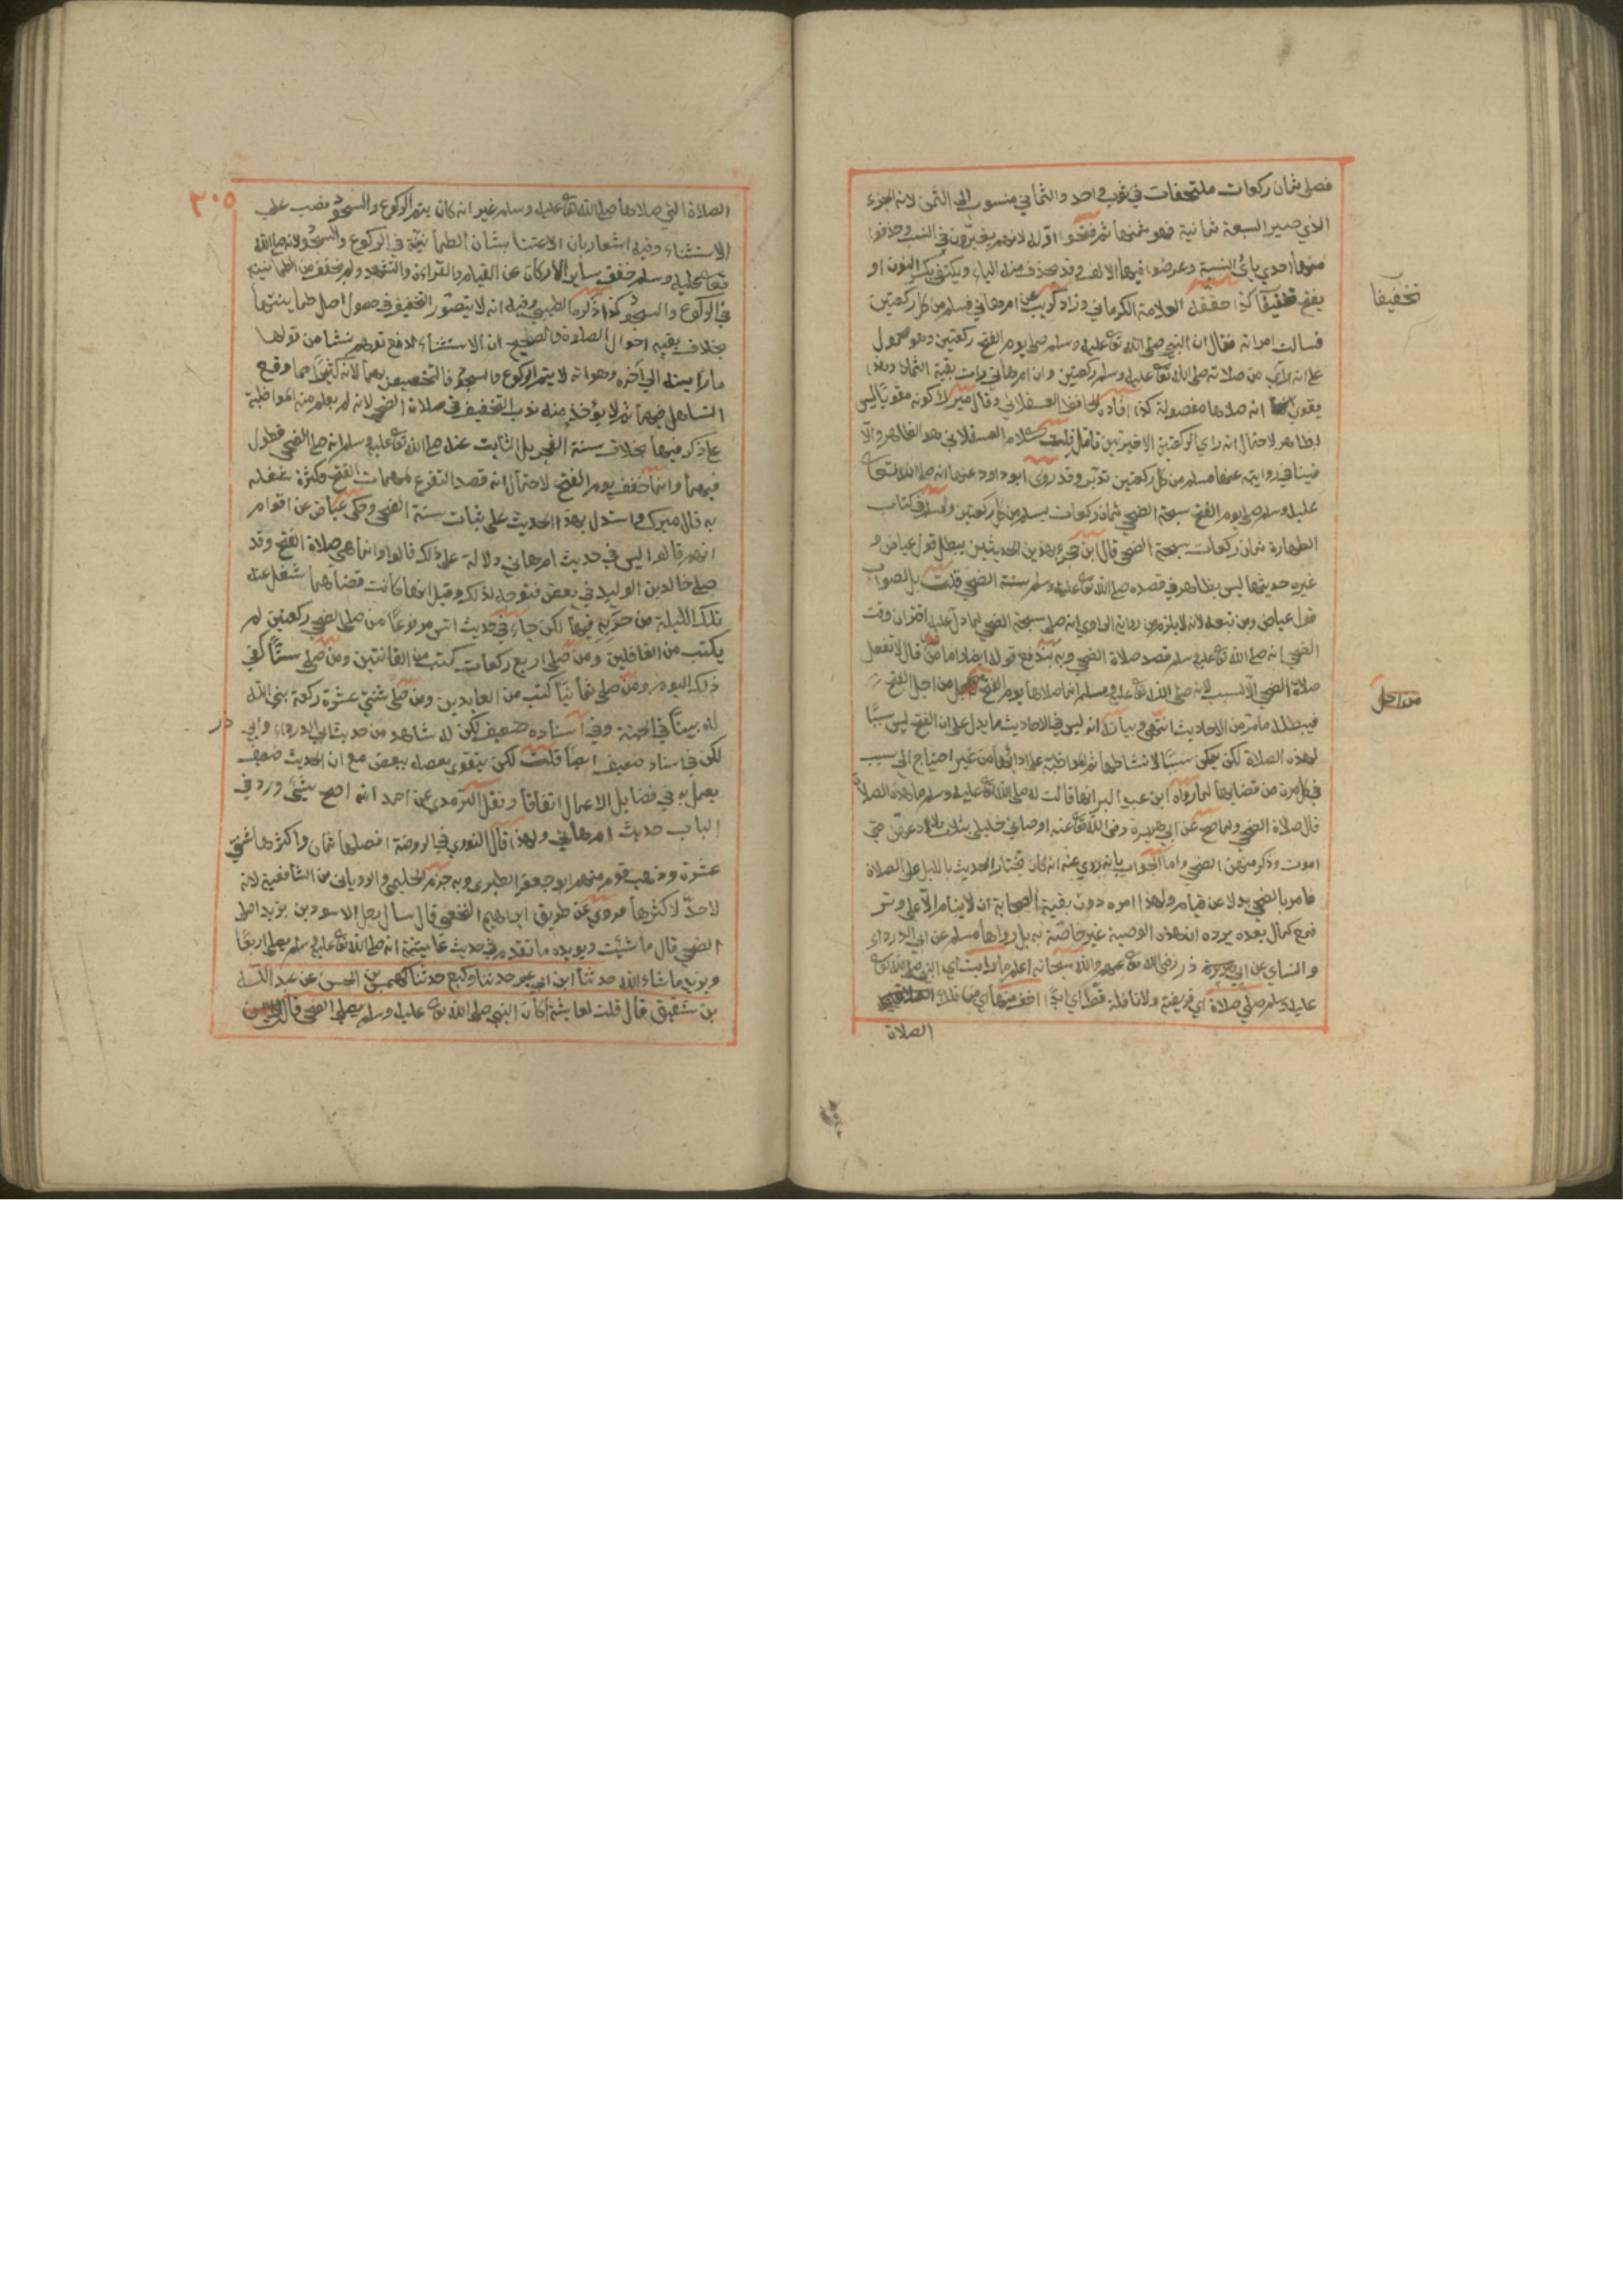 فصلى ثمان ركعات ملتحفات في ثوب واحد والثماني منسوب الى الثمن لانه الجزء
الذي صير السبعة ثمانية فهو ثمنها ثم فتحوا اوله لانهم يغيرون في النسب وحذفوا
منها احدى يائي النسبة وعوضوا فيها الالف وقد تحذف منه الياء ويكتفى بكسر النون او
يفتح تخفيفا كذا حققه العلامة الكرماني وزاد كريب عن ام هاني فسلم من كل ركعتين
تخفيفا
فسالت امراته فقال ان النبي صلى الله تعالى عليه وسلم صلى يوم الفتح ركعتين وهو محمول
على انه راى من صلاته صلى الله تعالى عليه وسلم ركعتين وان ام هاني رات بقية الثمان وهذا
يقوي انه صلاها مفصولة كذا افاده الحافظ العسقلاني وقال ميرك كونه مقويا ليس
بظاهر لاحتمال انه راي الركعتين الاخيرتين تامل قلت كلام العسقلاني هو الظاهر والا
فينافي روايته عنها فسلم من كل ركعتين تدبر وقد روى ابو داود عنها انه صلى الله تعالى
عليه وسلم صلى يوم الفتح سبحة الضحى ثمان ركعات يسلم من كل ركعتين ولمسلم في كتاب
الطهارة ثمان ركعات سبحة الضحى قال ابن حجر وبهذين الحديثين يبطل قول عياض و
غيره حديثها ليس بظاهر في قصده صلى الله تعالى عليه وسلم سنة الضحى قلت بل الصواب
قول عياض ومن تبعه لانه لا يلزم من رواية الراوي انه صلى سبحة الضحى لما دل عليه اقتران وقت
الضحى انه صلى الله تعالى عليه وسلم قصد صلاة الضحى وبه يندفع قوله ايضا واما من قال لا تفعل
صلاة الضحى الا لسبب لانه صلى الله تعالى عليه وسلم انما صلاها يوم الفتح من اجل الفتح
من اجل
فيبطله ما مر من الاحاديث انتهى وبيانه انه ليس في الاحاديث ما يدل على ان الفتح ليس سببا
لهذه الصلاة لكن يمكن سببا لانشائها ثم المواظبة على ادائها من غير احتياج الى سبب
في كل مرة من قضاياها لما رواه ابن عبد البر انها قالت له صلى الله تعالى عليه وسلم ما هذه الصلاة
قال صلاة الضحى ولما صح عن ابي هريرة رضي الله تعالى عنه اوصاني خليلي بثلاث لا ادعهن حتى
اموت وذكر منهن الضحى واما الجواب بانه روي عنه انه كان يختار الحديث بالليل على الصلاة
فامر بالضحى بدلا عن قيامه ولهذا امره دون بقية الصحابة ان لا ينام الا على وتر
فمع كمال بعده يرده ان هذه الوصية غير خاصة به بل رواها مسلم عن ابي الدرداء
والنساي عن ابي ذر رضي الله تعالى عنهم والله سبحانه اعلم ما رايت اي النبي صلى الله تعالى
عليه وسلم صلى صلاة اي فريضة ولا نافلة قط اي ابدا اخف منها اي من تلك
الصلاة
٣٠٥
الصلاة التي صلاها صلى الله تعالى عليه وسلم غير انه كان يتم الركوع والسجود نصب على
الاستثناء وفيه اشعار بان الاعتناء بشان الطمانينة في الركوع والسجود لانه صلى الله
تعالى عليه وسلم خفف ساير الاركان عن القيام والقراءة والتشهد ولم يخفف من الطمانينة
في الركوع والسجود كذا ذكره الطيبي وفيه انه لا يتصور التخفيف في حصول اصل طمانينتها
بخلاف بقية احوال الصلوة والصحيح ان الاستثناء لدفع توهم نشا من قولها
ما رايته الى آخره وهو انه لا يتم الركوع والسجود فالتخصيص بهما لانه كثيرا ما وقع
التساهل فيهما ثم لا يؤخذ منه ندب التخفيف في صلاة الضحى لانه لم يعلم منه المواظبة
على ذكر فيها بخلاف سنة الفجر بل الثابت عنه صلى الله تعالى عليه وسلم انه صلى الضحى فطول
فيها وانما خفف يوم الفتح لاحتمال انه قصد التفرغ لمهمات الفتح وكثرة شغله
به قال ميرك واستدل بهذا الحديث على اثبات سنة الضحى وحكى عياض عن اقوام
انهم قالوا ليس في حديث ام هاني دلالة على ذلك قالوا وانما هي صلاة الفتح وقد
صلى خالد بن الوليد في بعض فتوحه لذلك وقيل انها كانت قضاء لما شغل عنه
تلك الليلة من حزبه فيها لكن جاء في حديث انس مرفوعا من صلى الضحى ركعتين لم
يكتب من الغافلين ومن صلى اربع ركعات كتب من القانتين ومن صلى ستا كفي
ذلك اليوم ومن صلى ثمانيا كتب من العابدين ومن صلى ثنتي عشرة ركعة بنى الله
له بيتا في الجنة وفي اسناده ضعف لكن له شاهد من حديث ابي الدرداء وابي ذر
لكن في اسناد ضعيف ايضا قلت لكن يتقوى بعضه ببعض مع ان الحديث ضعيف
يعمل به في فضايل الاعمال اتفاقا ونقل الترمذي عن احمد انه اصح شيئ ورد في
الباب حديث ام هاني ولهذا قال النووي في الروضة افضلها ثمان واكثرها ثنتي
عشرة وذهب قوم منهم ابو جعفر الطبري وبه جزم الحليمي والروياني من الشافعية لانه
لا حد لاكثرها فروي عن طريق ابراهيم النخعي قال سال رجل الاسود بن يزيد اصلي
الضحى قال ما شئت ويويده ما تقدم في حديث عايشة انه صلى الله تعالى عليه وسلم يصلي اربعا
ويزيد ما شاء الله حدثنا ابن ابي عمر حدثنا وكيع حدثنا كهمس بن الحسن عن عبد الله
بن شقيق قال قلت لعايشة اكان النبي صلى الله تعالى عليه وسلم يصلي الضحى قالت